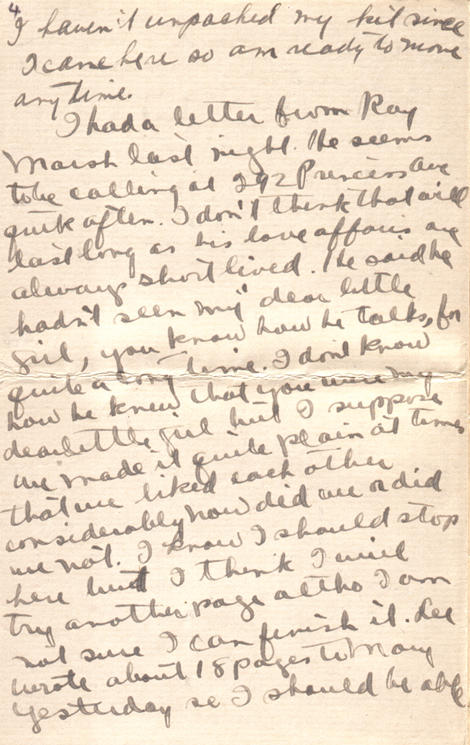 4
I haven't unpacked my kit since
I came here so am ready to move
anytime.
I had a letter from Ray
Marsh last night. He seems
to be calling at 292 Princess Ave
quite often. I don't think that will
last long as his love affairs are
always short lived. He said he
hadn't seen my "dear little
girl, you know how he talks, for
quite a long time. I don't know
how he knew that you were my
dear little girl but I suppose
we made it quite plain at times
that we liked each other
considerably now did we or did
we not. I know I should stop
here but I think I will
try another page altho I am
not sure I can finish it. Lee
wrote about 18 pages to Mary
yesterday so I should be able